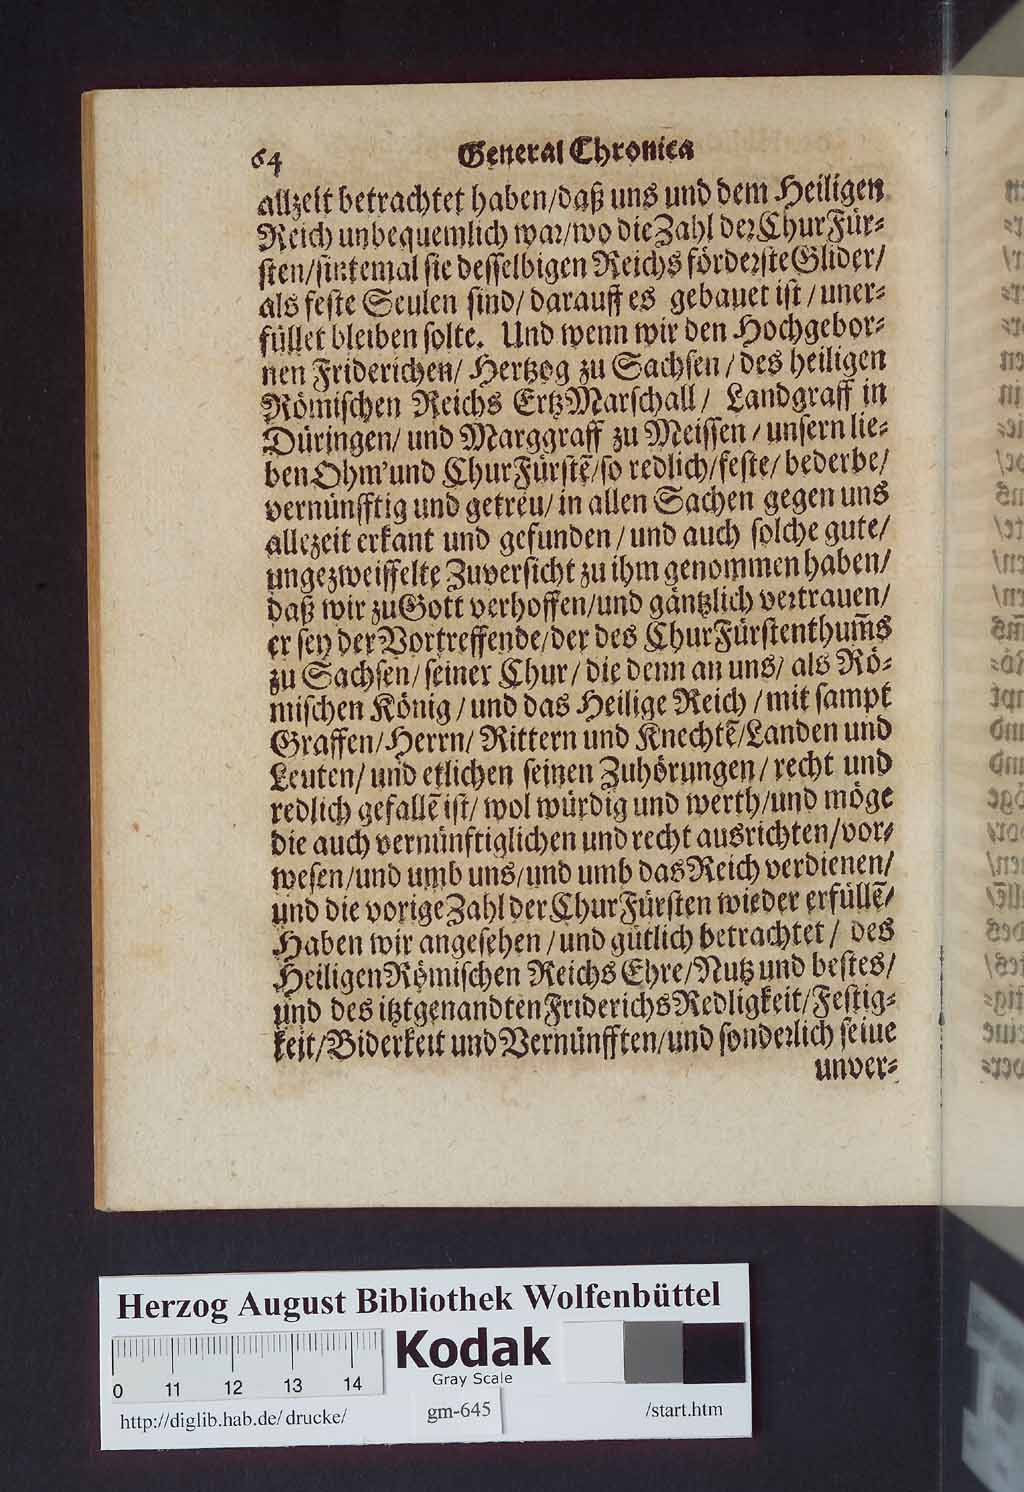 64 General Chronica
allzeit betrachtet haben/daß uns und dem Heiligen
Reich unbequemlich war/wo die Zahl der ChurFür-
sten/sintemal sie desselbigen Reichs förderste Glider/
als feste Seulen sind/ darauff es gebauet ist / uner-
füllet bleiben solte. Und wenn wir den Hochgebor-
nen Friderichen/ Hertzog zu Sachsen / des heiligen
Römischen Reichs ErtzMarschall / Landgraff in
Düringen/ und Marggraff zu Meissen / unsern lie-
ben Ohm' und ChurFürstē/so redlich/feste/ bederbe/
vernünfftig und getreu/ in allen Sachen gegen uns
allezeit erkant und gefunden / und auch solche gute/
ungezweiffelte Zuversicht zu ihm genommen haben/
daß wir zu Gott verhoffen/und gäntzlich vertrauen/
er sey der Vortreffende/der des ChurFürstenthum̄s
zu Sachsen/ seiner Chur/ die denn an uns/ als Rö-
mischen König / und das Heilige Reich / mit sampt
Graffen/Herrn/ Rittern und Knechtē/Landen und
Leuten/ und etlichen seinen Zuhörungen/ recht und
redlich gefallē ist/ wol würdig und werth/und möge
die auch vernünftiglichen und recht ausrichten/vor-
wesen/und umb uns/und umb das Reich verdienen/
und die vorige Zahl der ChurFürsten wieder erfüllē/
Haben wir angesehen / und gütlich betrachtet / des
Heiligen Römischen Reichs Ehre/Nutz und bestes/
und des itztgenandten Friderichs Redligkeit/Festig-
keit/Biderkeit und Vernünfften/und sonderlich seine
unver-
Herzog August Bibliothek Wolfenbüttel
Kodak
Gray Scale
0 11 12 13 14
http://diglib.hab.de/drucke/ gm-645 /start.htm